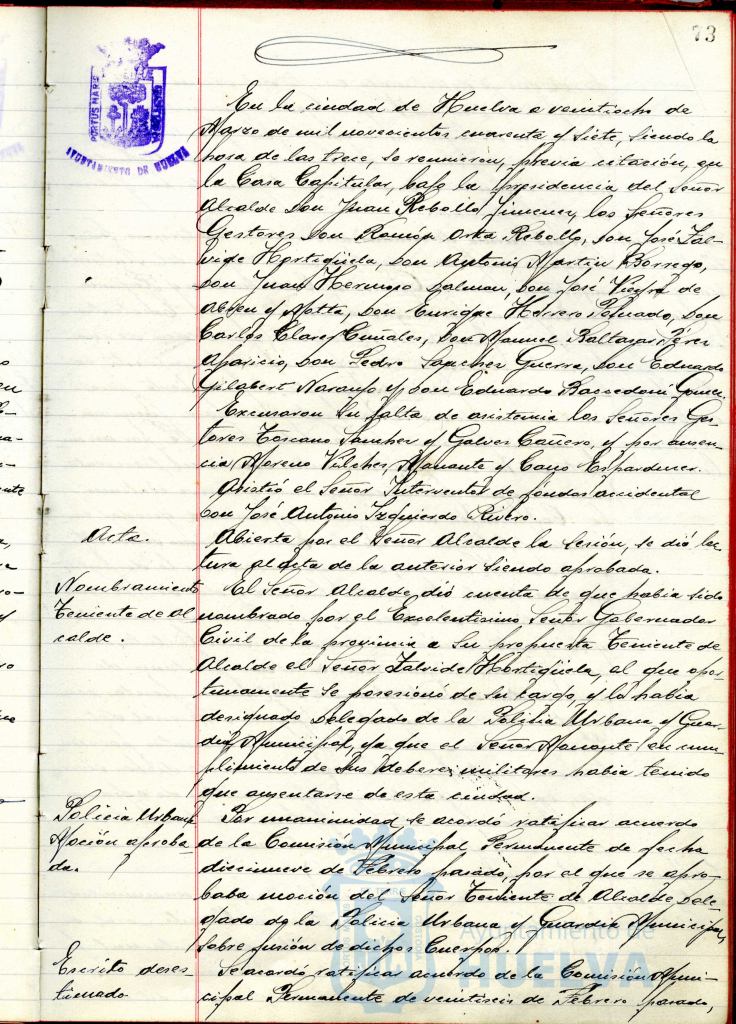 73
PORTUS MARIS
AYUNTAMIENTO DE HUELVA
En la ciudad de Huelva a veintiocho de
Marzo de mil novecientos cuarenta y siete, siendo la
hora de las trece, se reunieron, previa citación, en
la Casa Capitular, bajo la presidencia del Señor
Alcalde Don Juan Rebollo Jimenez, los Señores
Gestores Don Ramón Orta Rebollo, Don José Zal-
vide Hortigüela, Don Antonio Martin Borrego,
Don Juan Hermoso Dalman, Don José Vieyra de
Abreu y Motta, Don Enrique Herrero Penuado, Don
Carlos Clarés Cuñales, Don Manuel Baltazar Pérez
Aparicio, Don Pedro Sanchez Guerra, Don Eduardo
Gilabert Naranjo y Don Eduardo Baccedoni Gomez.
Excusaron su falta de asistencia los Señores Ges-
tores Toscano Sanchez y Galvez Cañero, y por ausen-
cia Moreno Vilches, Manante y Cano Esparducer.
Asistió el Señor Interventor de fondos accidental
Don José Antonio Izquierdo Rivero.
Acta.
Abierta por el Señor Alcalde la sesión, se dió lec-
tura al acta de la anterior siendo aprobada.
Nombramiento
Teniente de Al
calde.
El Señor Alcalde dió cuenta de que habia sido
nombrado por el Excelentísimo Señor Gobernador
Civil de la provincia a su propuesta Teniente de
Alcalde el Señor Zalvide Hortigüela, el que opor-
tunamente se posesionó de su cargo, y lo habia
designado Delegado de la Policia Urbana y Guar-
dia Municipal, ya que el Señor Manante en cum-
plimiento de sus deberes militares habia tenido
que ausentarse de esta ciudad.
Policia Urbana
Moción aproba-
da.
Por unanimidad se acordó ratificar acuerdo
de la Comisión Municipal Permanente de fecha
diecinueve de Febrero pasado, por el que se apro-
baba moción del Señor Teniente de Alcalde Dele-
gado de la Policia Urbana y Guardia Municipal,
sobre fusión de dichos Cuerpos.
Ayuntamiento de
HUELVA
Escrito deses
timado
Se acordó ratificar acuerdo de la Comisión Muni-
cipal Permanente de veintiseis de Febrero pasado,